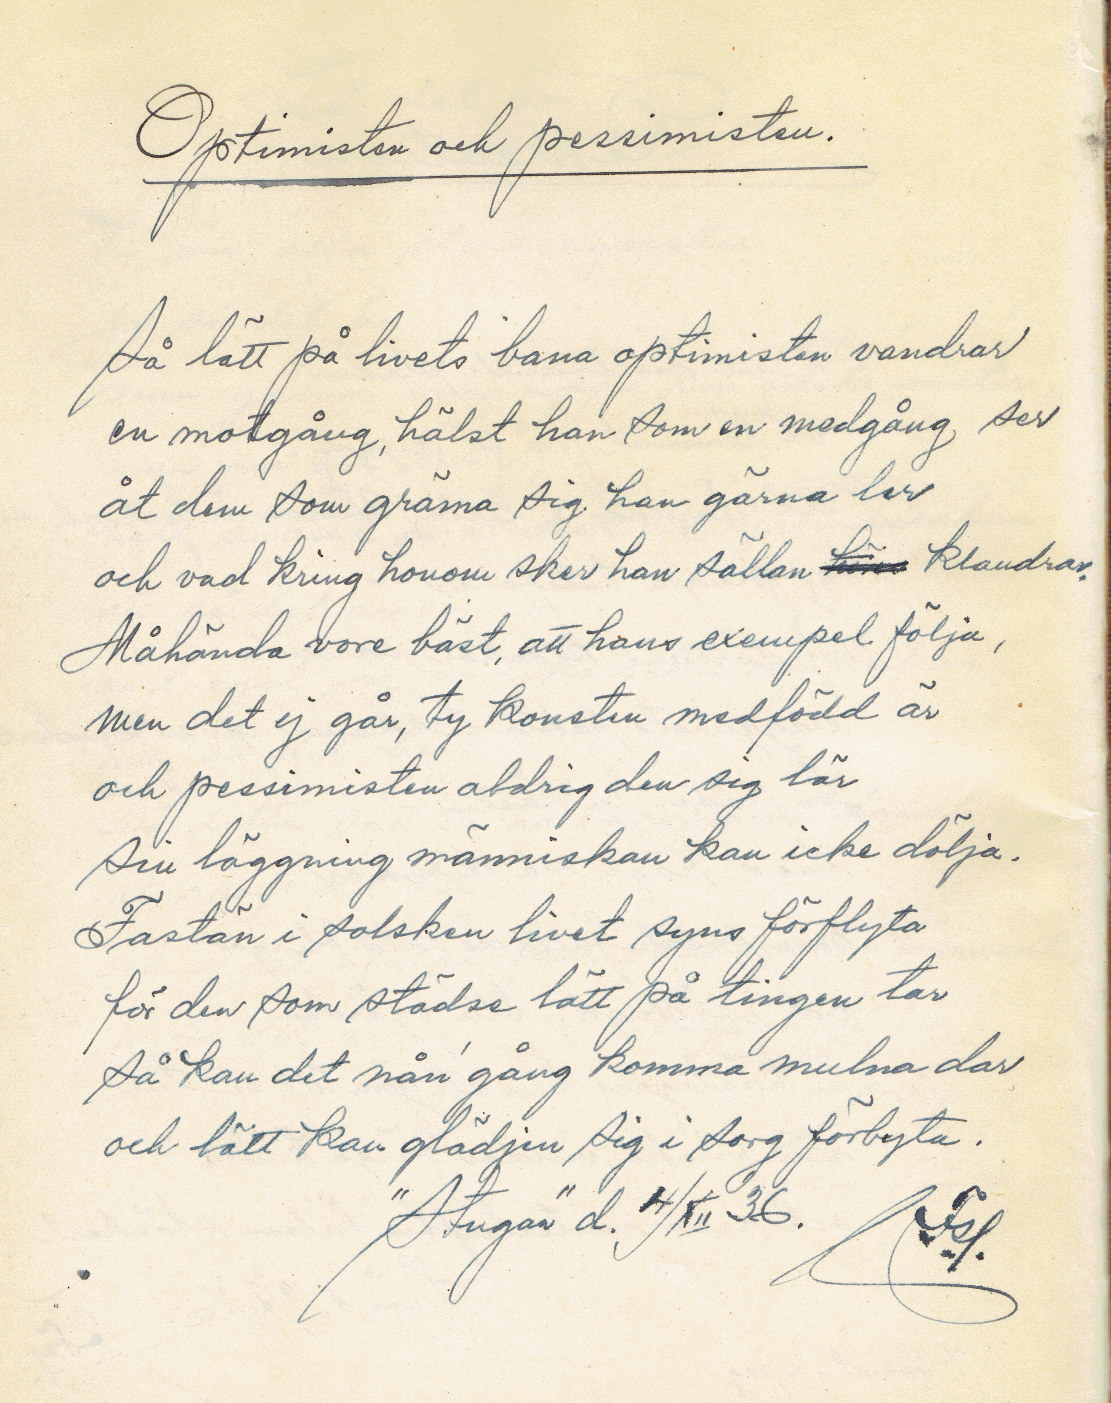 Optimisten och pessimisten.
Så lätt på livets bana optimisten vandrar
en motgång, hälst han som en medgång ser
åt dem som gräma sig han gärna ler
och vad kring honom sker han sällan klandrar.
Måhända vore bäst, att hans exempel följa,
men det ej går, ty konsten medfödd är
och pessimisten aldrig den sig lär
sin läggning människan kan icke dölja.
Fastän i solsken livet syns förflyta
för den som städse lätt på tingen tar
så kan det nån' gång komma mulna dar
och lätt kan glädjen sig i sorg förbyta.
"Stugan" d. 4/XII 36.